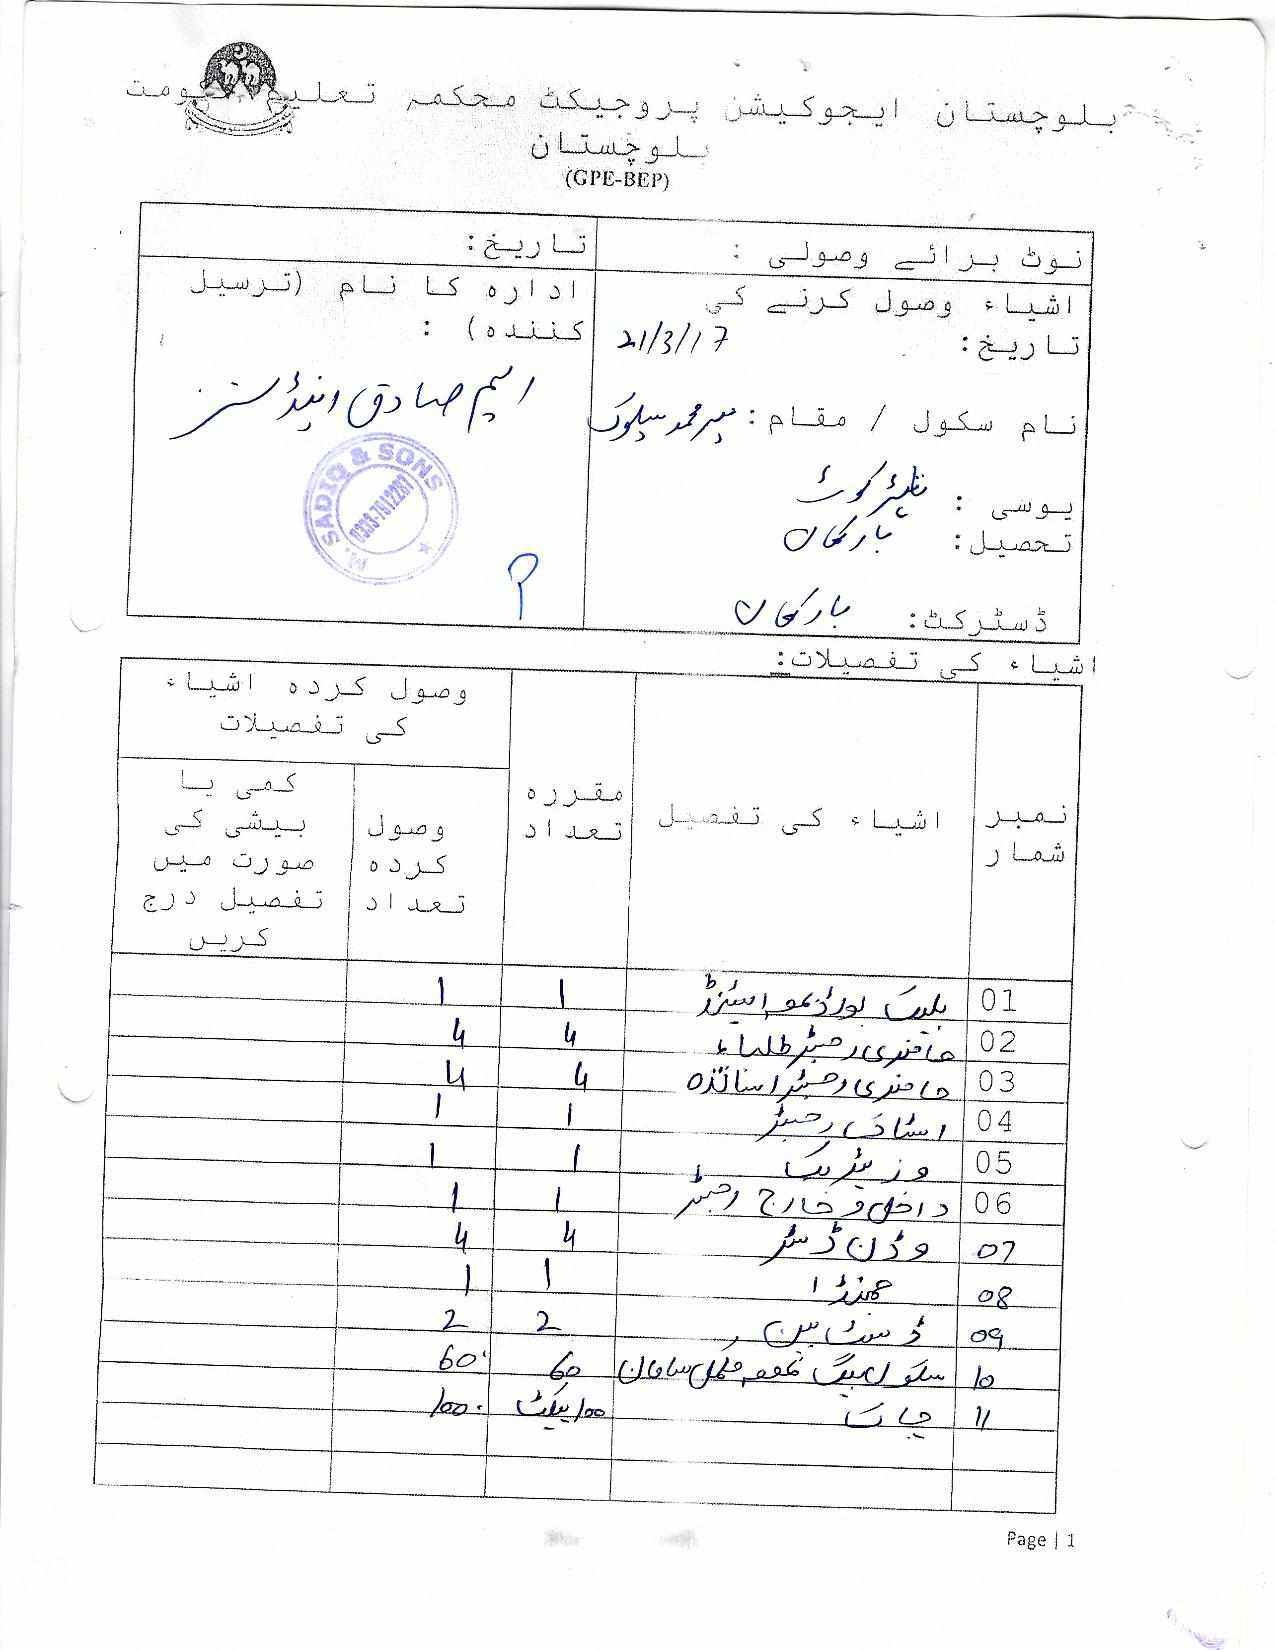 بلوچستان ایجوکیشن پروجیکٹ محکمہ تعلیم حکومت
بلوچستان
(GPE-BEP)
نوٹ برائے وصولی :
تاریخ:
اشیاء وصول کرنے کی
تاریخ: 21/3/17
نام سکول / مقام:
یوسی :
تحصیل: بارکھان
ڈسٹرکٹ: بارکھان
ادارہ کا نام (ترسیل
کنندہ) :
ایم صادق اینڈ سنز
M. SADIQ & SONS
اشیاء کی تفصیلات:
نمبر شمار
اشیاء کی تفصیل
مقررہ تعداد
وصول کردہ اشیاء
کی تفصیلات
وصول کردہ تعداد
کمی یا
بیشی کی
صورت میں
تفصیل درج
کریں
01 بلیک بورڈ بمعہ اسٹینڈ 1 1
02 حاضری رجسٹر طلباء 4 4
03 حاضری رجسٹر اساتذہ 4 4
04 اسٹاک رجسٹر 1 1
05 وزیٹر بک 1 1
06 داخل و خارج رجسٹر 1 1
07 وڈن ڈسٹر 4 4
08 جھنڈا 1 1
09 ڈسٹ بین 2 2
10 سکول بیگ بمعہ مکمل سامان 60 60
11 چاک 100 پیکٹ 100
Page | 1